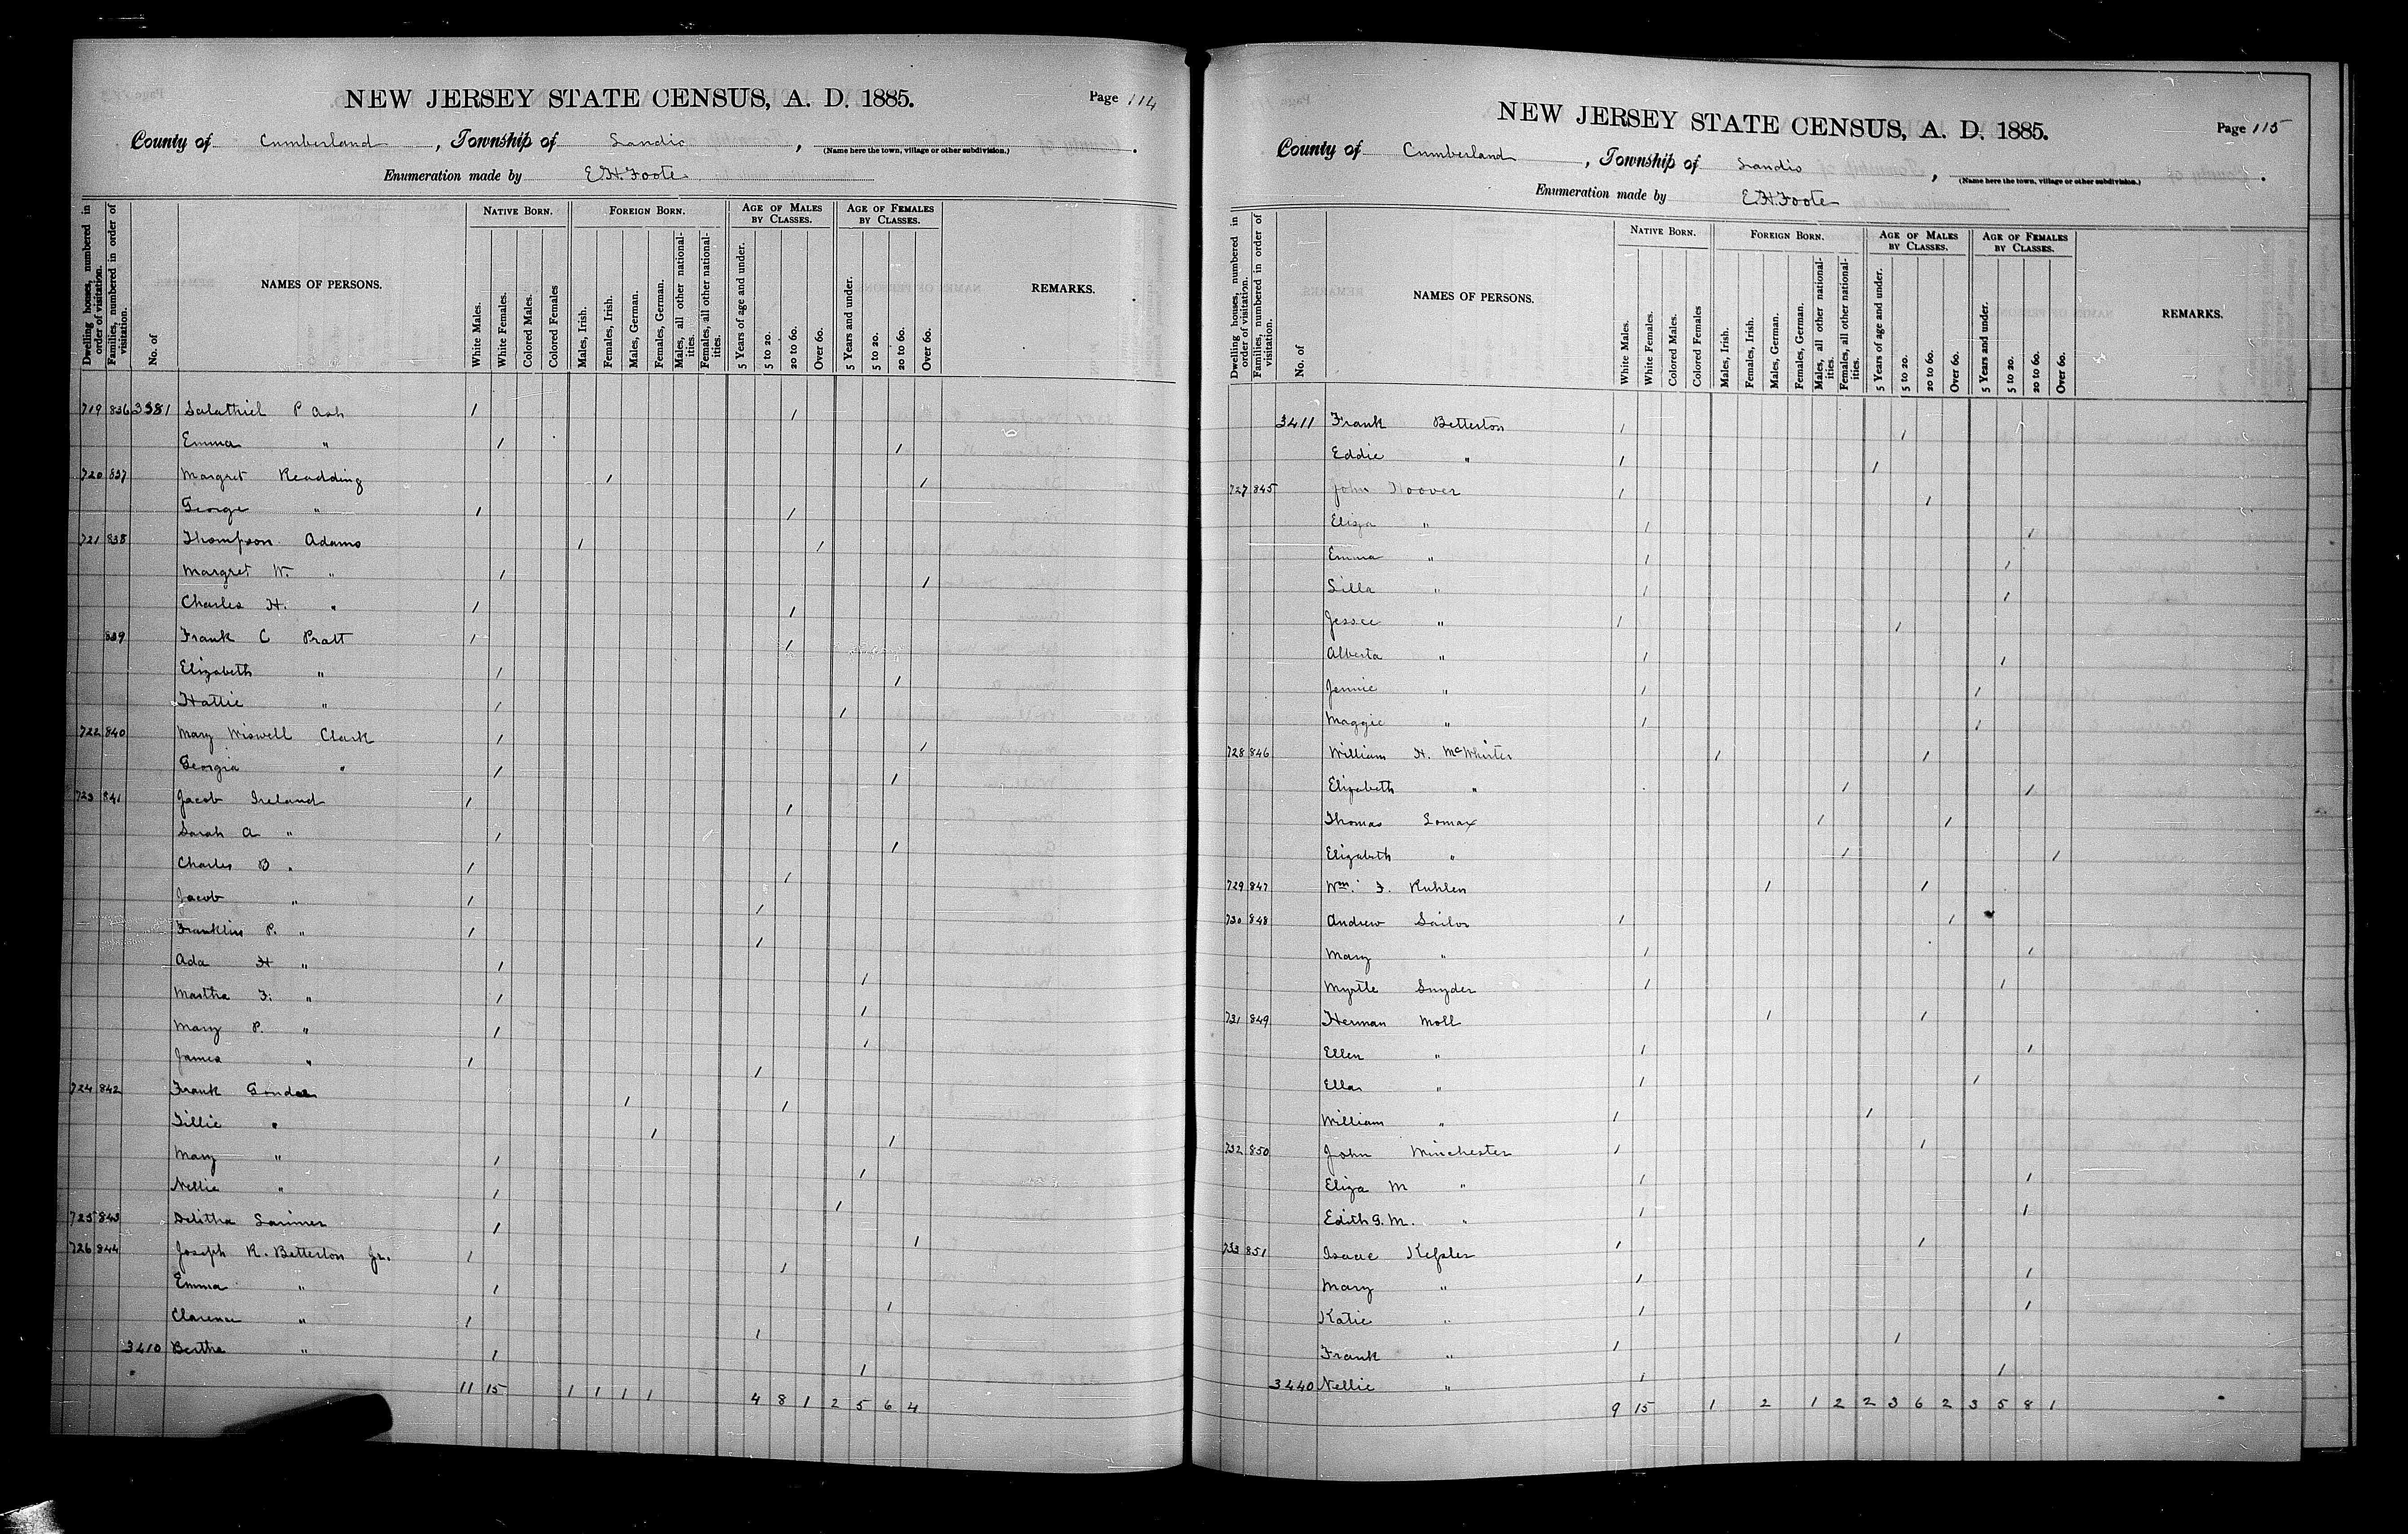 NEW JERSEY STATE CENSUS, A. D. 1885.
Page 114
County of Cumberland, Township of Landis, (Name here the town, village or other subdivision.)
Enumeration made by E. H. Foote
Dwelling houses, numbered in order of visitation.
Families, numbered in order of visitation.
No. of
NAMES OF PERSONS.
NATIVE BORN.
White Males.
White Females.
Colored Males.
Colored Females
FOREIGN BORN.
Males, Irish.
Females, Irish.
Males, German.
Females, German.
Males, all other nationalities.
Females, all other nationalities.
AGE OF MALES BY CLASSES.
5 Years of age and under.
5 to 20.
20 to 60.
Over 60.
AGE OF FEMALES BY CLASSES.
5 Years and under.
5 to 20.
20 to 60.
Over 60.
REMARKS.
719 836 3381 Salathiel P Ash 1 1
Emma " 1 1
720 837 Margret Readding 1 1
George " 1 1
721 838 Thompson Adams 1 1
Margret W. " 1 1
Charles H. " 1 1
839 Frank C Pratt 1 1
Elizabeth " 1 1
Hattie " 1 1
722 840 Mary Wiswell Clark 1 1
Georgia " 1 1
723 841 Jacob Ireland 1 1
Sarah A " 1 1
Charles B " 1 1
Jacob " 1 1
Franklin P. " 1 1
Ada H " 1 1
Martha F. " 1 1
Mary P. " 1 1
James " 1 1
724 842 Frank 1 1
Tillie " 1 1
Mary " 1 1
Nellie " 1 1
725 843 1 1
726 844 Joseph R. Betterton Jr. 1 1
Emma " 1 1
Clarence " 1 1
3410 Bertha " 1 1
11 15 1 1 1 1 4 8 1 2 5 6 4
NEW JERSEY STATE CENSUS, A. D. 1885.
Page 115
County of Cumberland, Township of Landis, (Name here the town, village or other subdivision.)
Enumeration made by E. H. Foote
Dwelling houses, numbered in order of visitation.
Families, numbered in order of visitation.
No. of
NAMES OF PERSONS.
NATIVE BORN.
White Males.
White Females.
Colored Males.
Colored Females
FOREIGN BORN.
Males, Irish.
Females, Irish.
Males, German.
Females, German.
Males, all other nationalities.
Females, all other nationalities.
AGE OF MALES BY CLASSES.
5 Years of age and under.
5 to 20.
20 to 60.
Over 60.
AGE OF FEMALES BY CLASSES.
5 Years and under.
5 to 20.
20 to 60.
Over 60.
REMARKS.
3411 Frank Betterton 1 1
Eddie " 1 1
727 845 John Hoover 1 1
Eliza " 1 1
Emma " 1 1
Silla " 1 1
Jessee " 1 1
Alberta " 1 1
Jennie " 1 1
Maggie " 1 1
728 846 William H. McWhirter 1 1
Elizabeth " 1 1
Thomas Lomax 1 1
Elizabeth " 1 1
729 847 Wm. F. Kuhlen 1 1
730 848 Andrew Sailor 1 1
Mary " 1 1
Myrtle Snyder 1 1
731 849 Herman Moll 1 1
Ellen " 1 1
Ella " 1 1
William " 1 1
732 850 John Winchester 1 1
Eliza M " 1 1
Edith G. M. " 1 1
733 851 Isaac Kessler 1 1
Mary " 1 1
Katie " 1 1
Frank " 1 1
3440 Nellie " 1 1
9 15 1 2 1 2 2 3 6 2 3 5 8 1